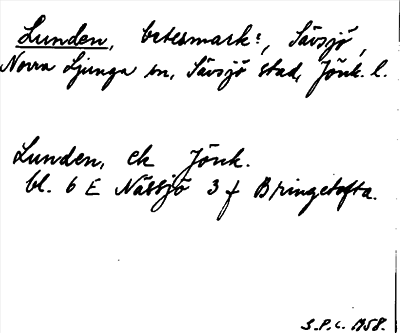 Lunden, betesmark:, Sävsjö,
Norra Ljunga sn, Sävsjö stad, Jönk. l.
Lunden, ek Jönk.
bl. 6 E Nässjö 3 f Bringetofta.
S.P.C. 1958.